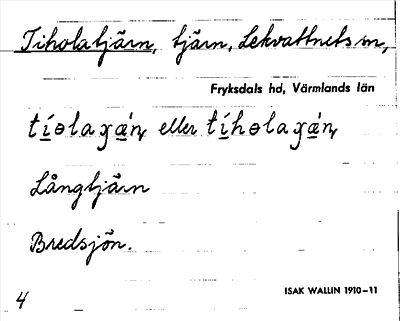 Tiholatjärn, tjärn, Lekvattnets sn,
Fryksdals hd, Värmlands län
tíɵlaɣǽn̥ eller tíhɵlaɣǽn̥
Långtjärn
Bredsjön.
4
ISAK WALLIN 1910-11